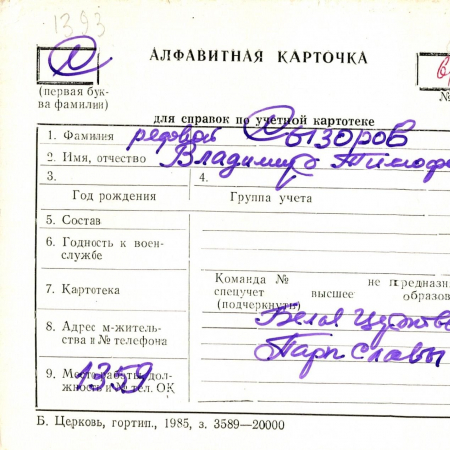 1393
С
АЛФАВИТНАЯ КАРТОЧКА
(первая бук-
ва фамилии)
№
для справок по учетной картотеке
1. Фамилия рядовой Сызоров
2. Имя, отчество Владимир Тимоф
3.
4.
Год рождения
Группа учета
5. Состав
6. Годность к воен-
службе
7. Картотека
Команда № не предназна
спецучет высшее образов
(подчеркнуть)
8. Адрес м-житель-
ства и № телефона
Белая Церковь
Парк Славы
9. Место работы, дол-
жность и № тел. ОК
1359
Б. Церковь, гортип., 1985, з. 3589—20000